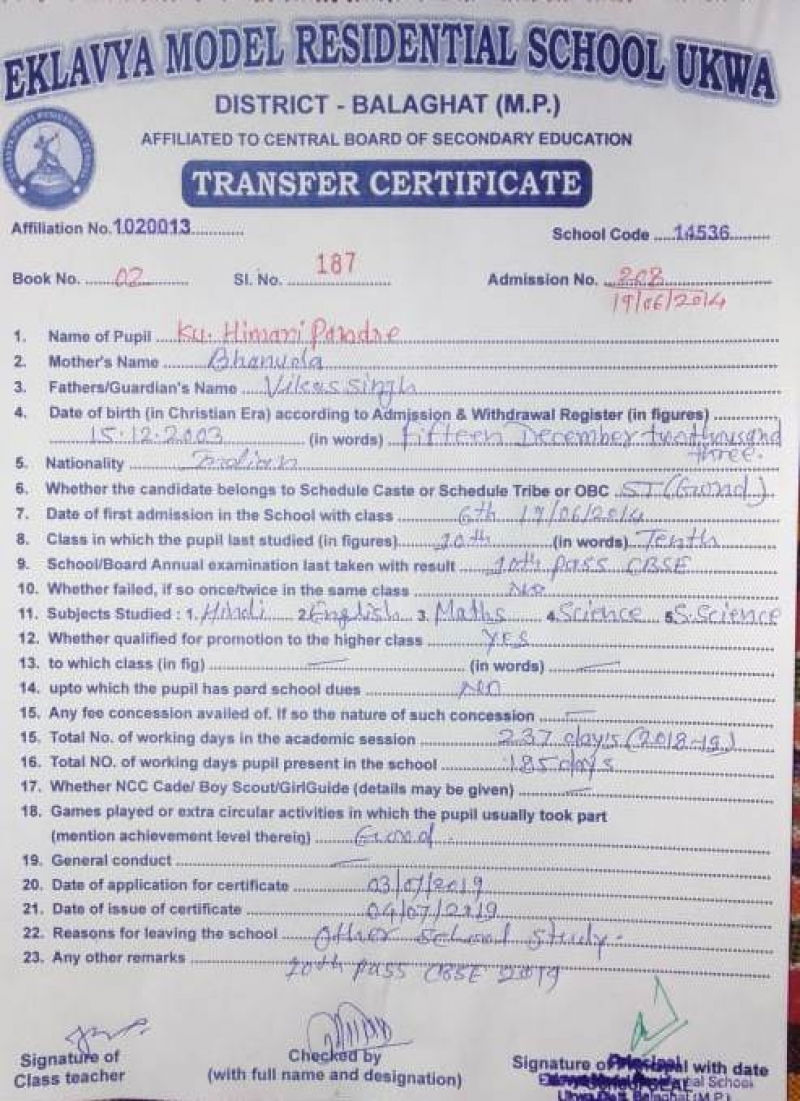 EKLAVYA MODEL RESIDENTIAL SCHOOL UKWA
DISTRICT - BALAGHAT (M.P.)
AFFILIATED TO CENTRAL BOARD OF SECONDARY EDUCATION
TRANSFER CERTIFICATE
Affiliation No. 1020013
School Code 14536
Book No. 02 Sl. No. 187 Admission No. 208
19/06/2014
1. Name of Pupil Ku. Himani Pandre
2. Mother's Name
3. Fathers/Guardian's Name Vikas singh
4. Date of birth (in Christian Era) according to Admission & Withdrawal Register (in figures)
15.12.2003 (in words) fifteen December twothousand
three.
5. Nationality Indian
6. Whether the candidate belongs to Schedule Caste or Schedule Tribe or OBC ST (Gond)
7. Date of first admission in the School with class 6th 19/06/2014
8. Class in which the pupil last studied (in figures) 10th (in words) Tenth
9. School/Board Annual examination last taken with result 10th pass CBSE
10. Whether failed, if so once/twice in the same class No
11. Subjects Studied : 1. Hindi 2. English 3. Maths 4. Science 5. S. Science
12. Whether qualified for promotion to the higher class YES
13. to which class (in fig) (in words)
14. upto which the pupil has pard school dues NO
15. Any fee concession availed of. If so the nature of such concession
15. Total No. of working days in the academic session 237 days (2018-19)
16. Total NO. of working days pupil present in the school 185 days
17. Whether NCC Cade/ Boy Scout/GirlGuide (details may be given)
18. Games played or extra circular activities in which the pupil usually took part
(mention achievement level therein) Good.
19. General conduct
20. Date of application for certificate 03/07/2019
21. Date of issue of certificate 04/07/2019
22. Reasons for leaving the school Other school study.
23. Any other remarks 10th pass CBSE 2019
Signature of
Class teacher
Checked by
(with full name and designation)
Signature of Principal with date
SEAL School
Balaghat (M.P.)